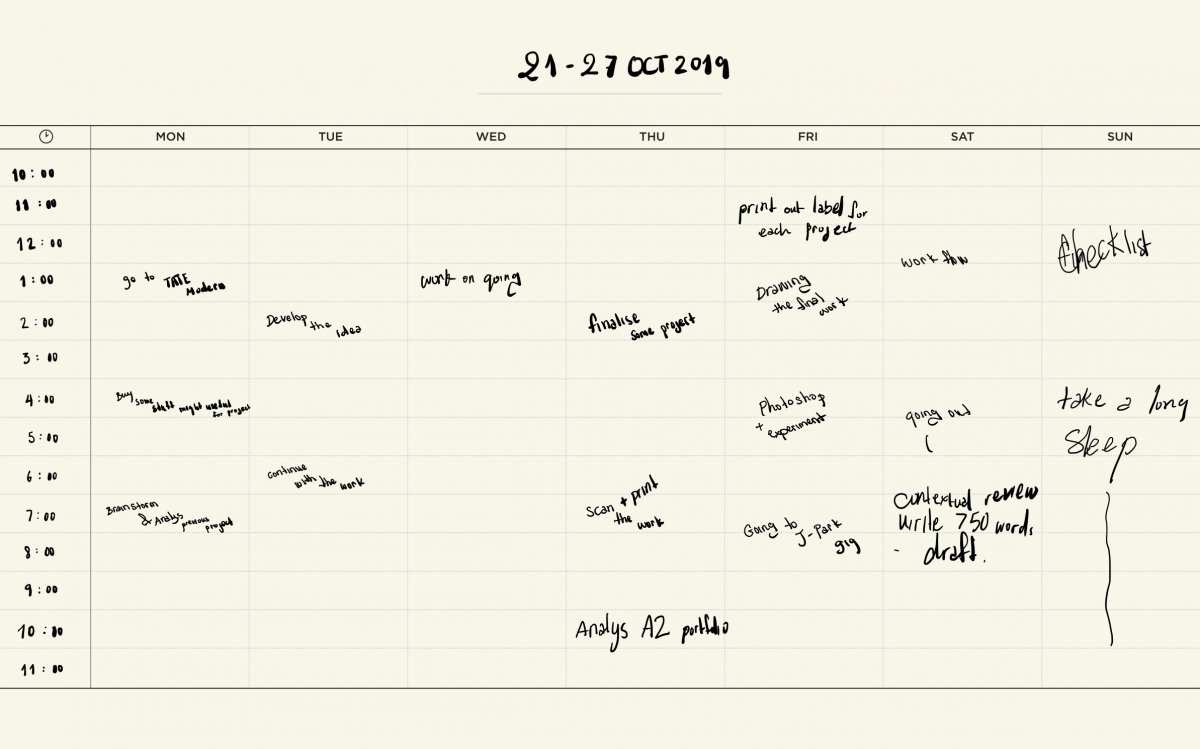 21-27 OCT 2019
MON TUE WED THU FRI SAT SUN
10:00
11:00
print out label for
each project
12:00
work flow
Checklist
1:00
go to TATE
Modern
work on going
Drawing
the final
work
2:00
Develop
the Idea
finalise
some project
3:00
4:00
Buy some
stuff might useful
for project
Photoshop
+ experiment
going out
take a long
sleep
5:00
6:00
continue
with the work
7:00
Brainstorm
& Analys previous
project
scan + print
the work
Going to
J-Park
gig
contextual review
write 750 words
- draft.
8:00
9:00
10:00
Analys A2 portfolio
11:00